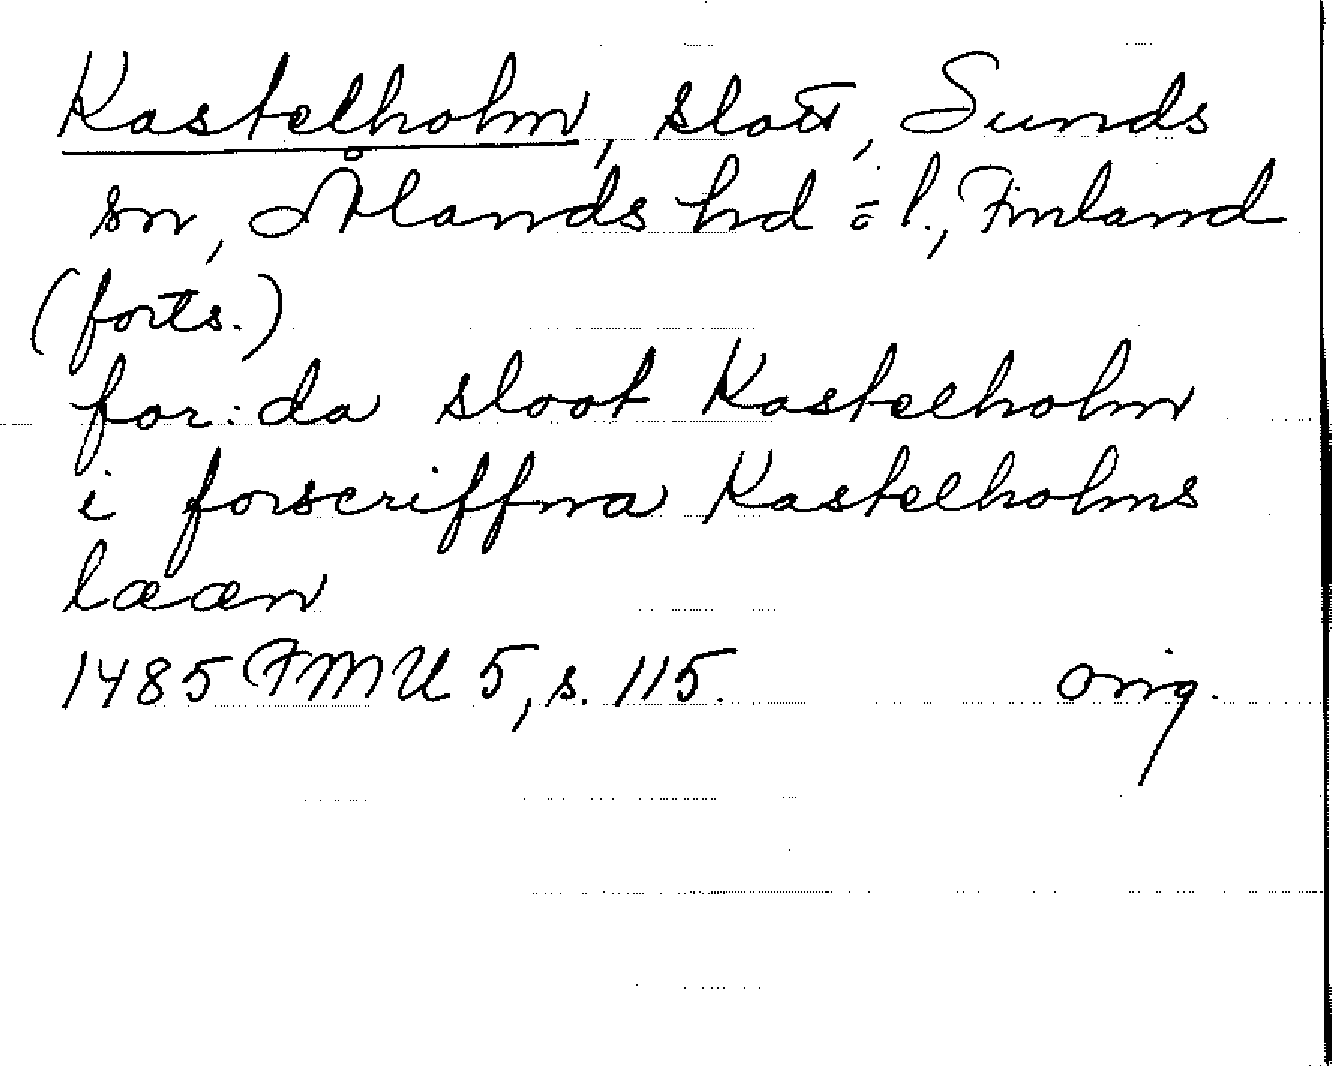 Kastelholm, slott, Sunds
sn, Ålands hd o l., Finland
(forts.)
for: da sloot Kastelholm
i forscriffna Kastelholms
lææn
1485 FMU 5, s. 115. orig.